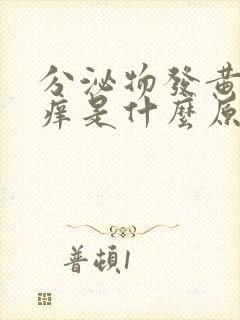 分泌物發黃
痒是什麼原
普頓1